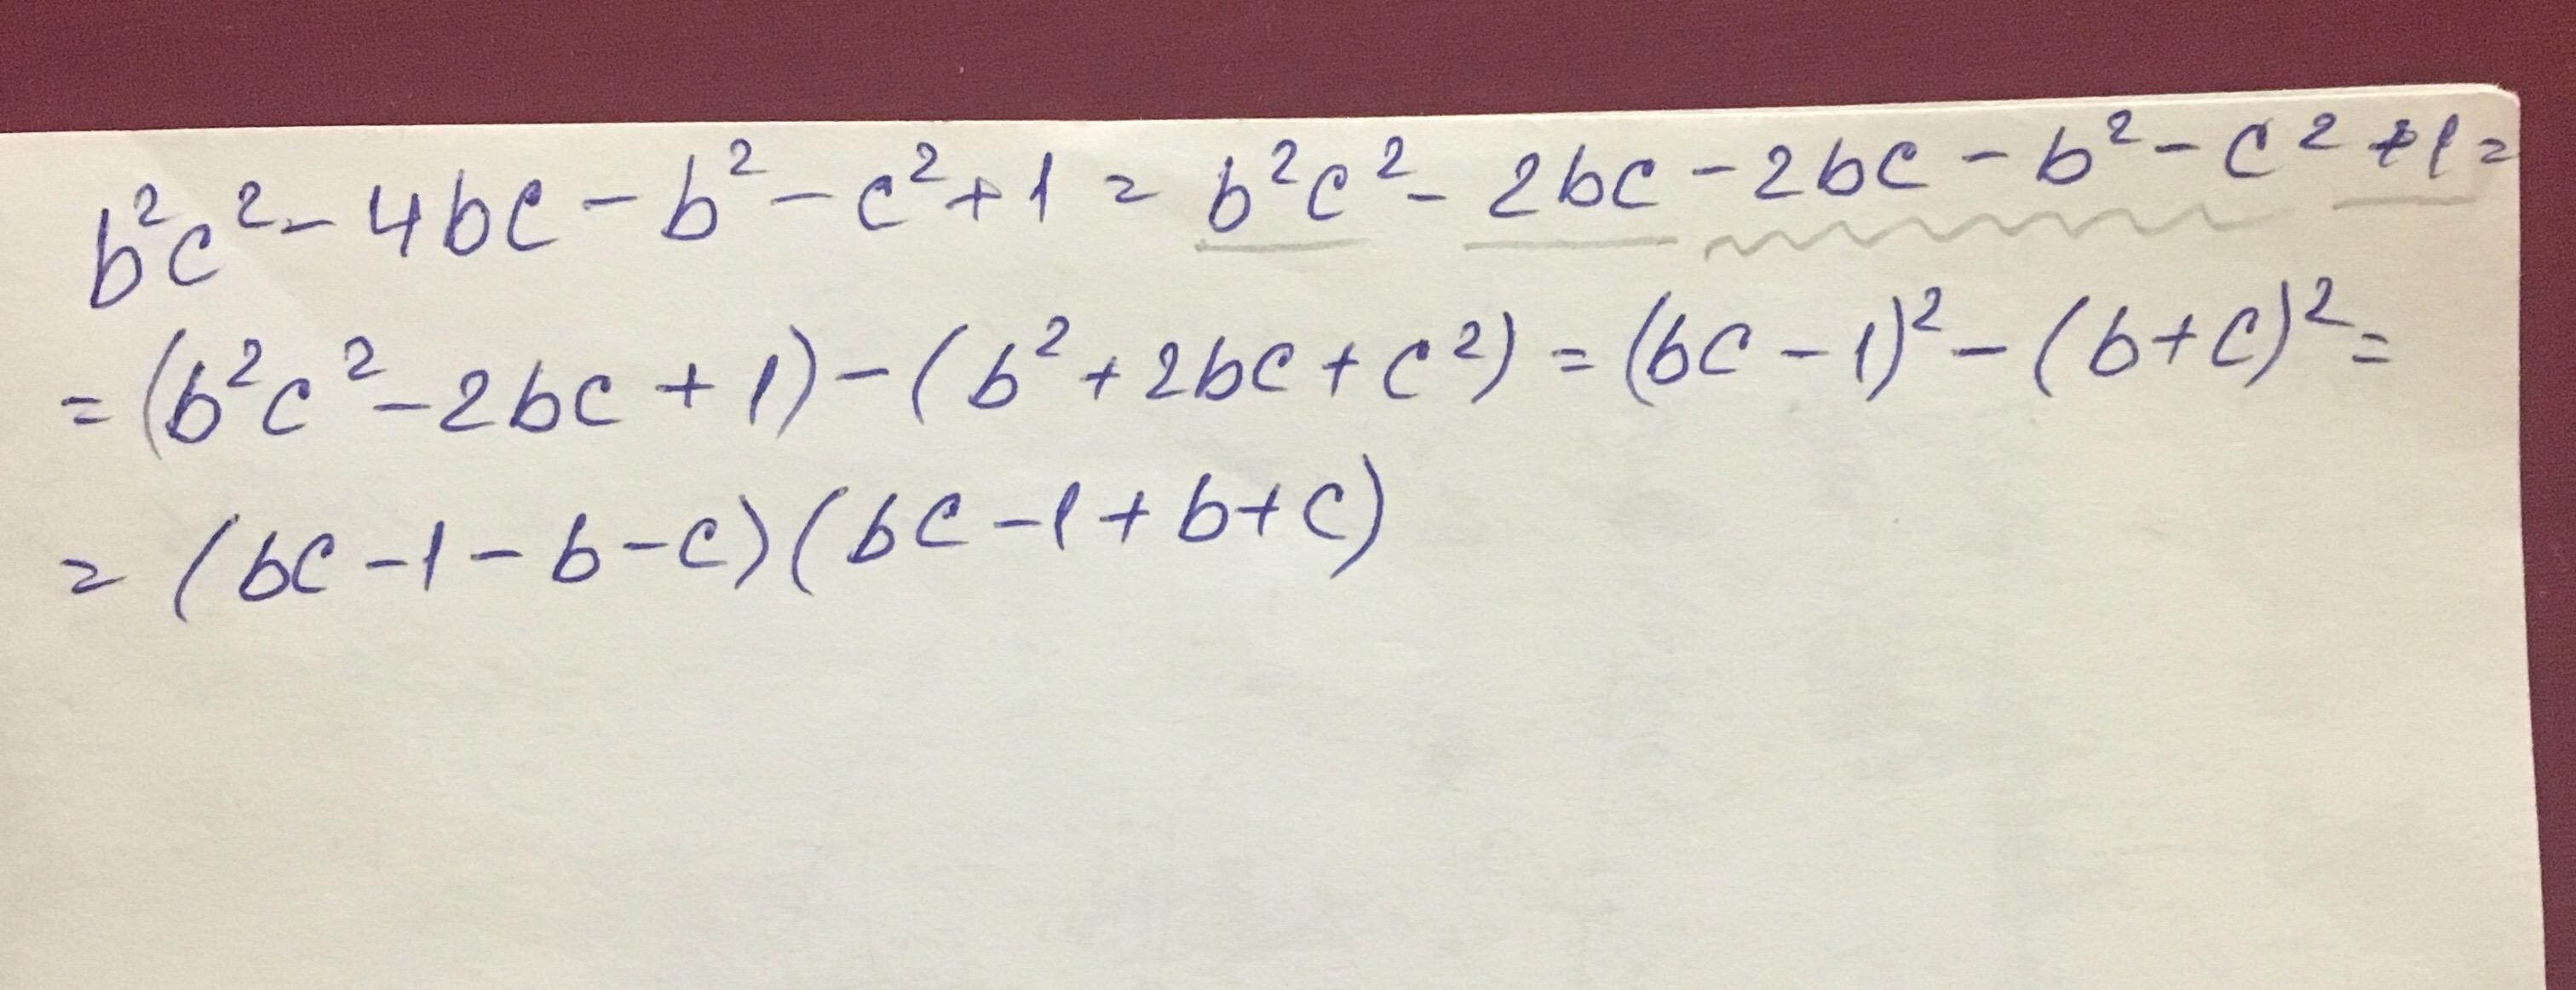 b²c² - 4bc - b² - c² + 1 = b²c² - 2bc - 2bc - b² - c² + 1 =
= (b²c² - 2bc + 1) - (b² + 2bc + c²) = (bc - 1)² - (b + c)² =
= (bc - 1 - b - c)(bc - 1 + b + c)